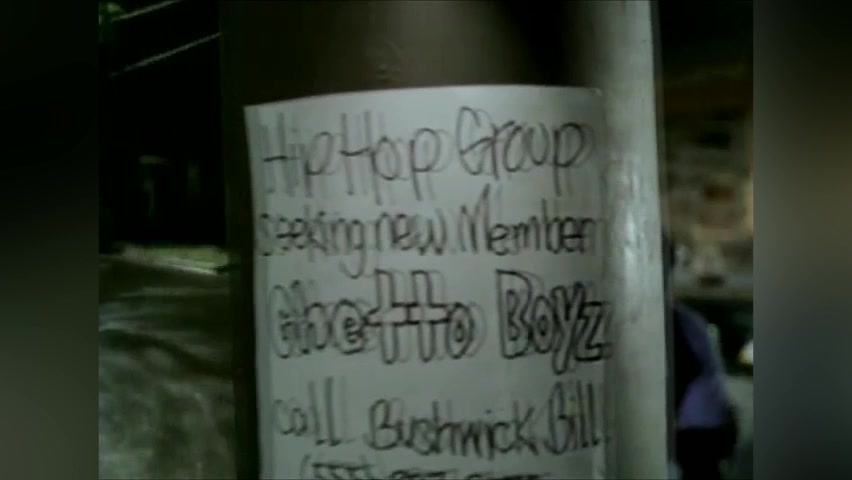 Hip Hop Group
seeking new Member
Ghetto Boyz
call Bushwick Bill